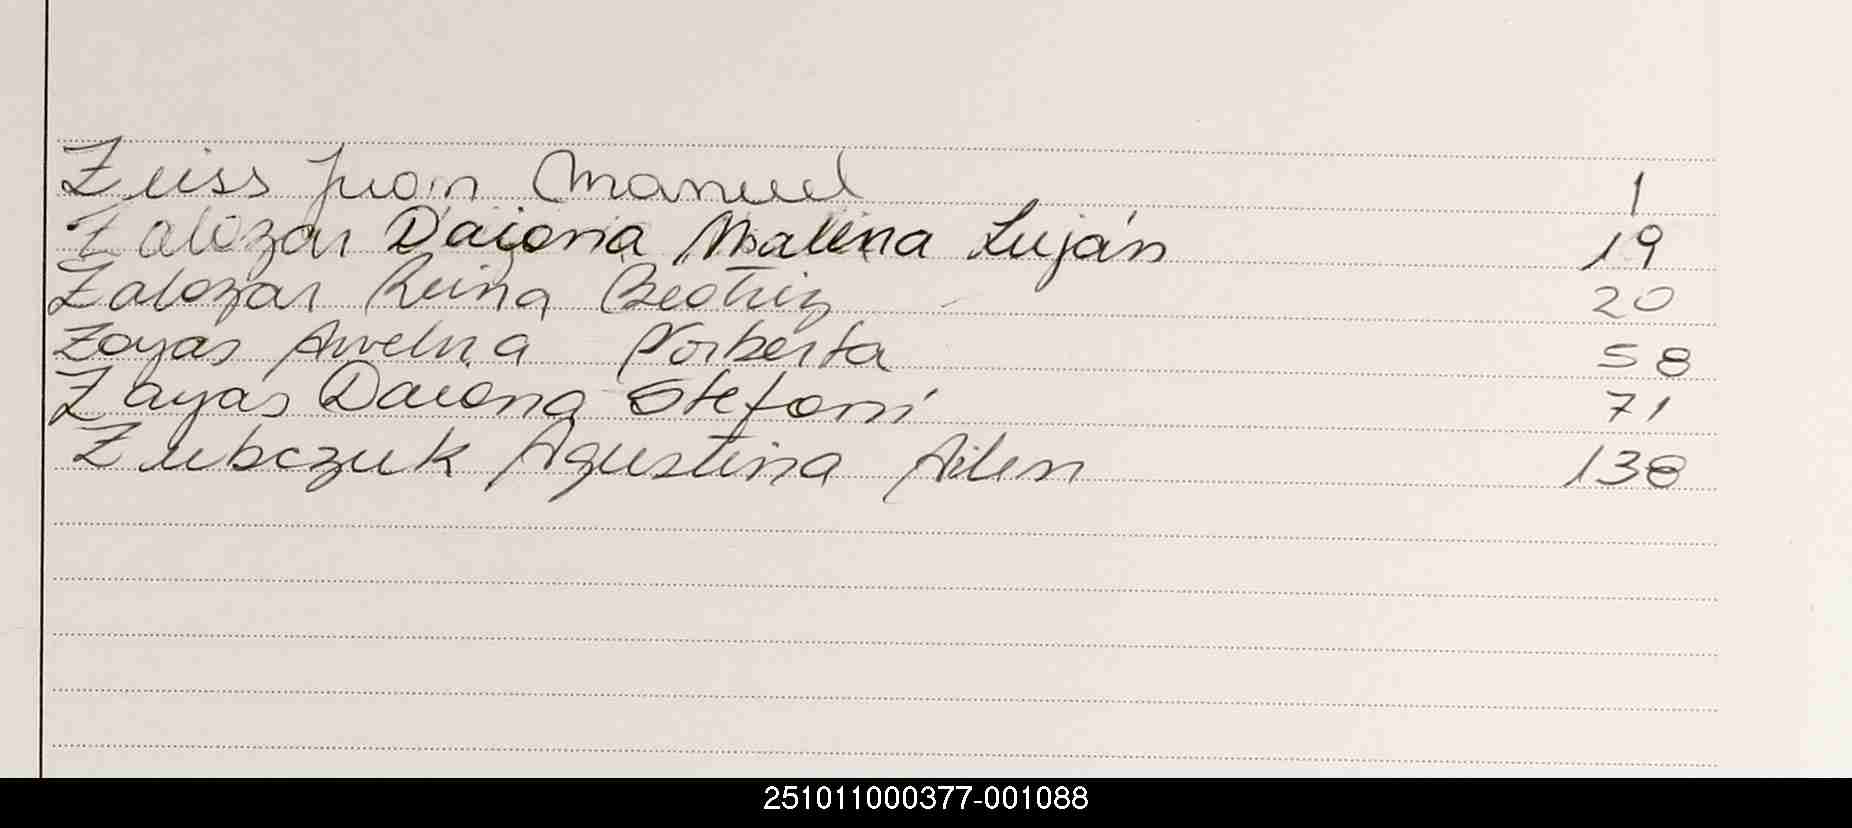 Zeiss Juan Manuel 1
Zalozar Daiana Malena Luján 19
Zalozar Reina Beatriz 20
Zayas Avelina Norberta 58
Zayas Daiana Stefani 71
Zubczuk Agustina Ailen 138
251011000377-001088